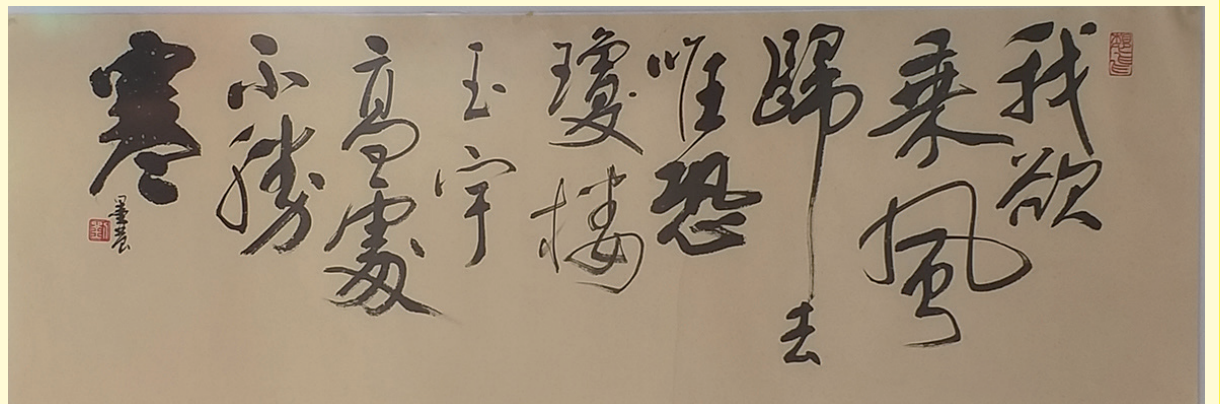 我欲
乘風
歸去
唯恐
瓊樓
玉宇
高處
不勝
寒